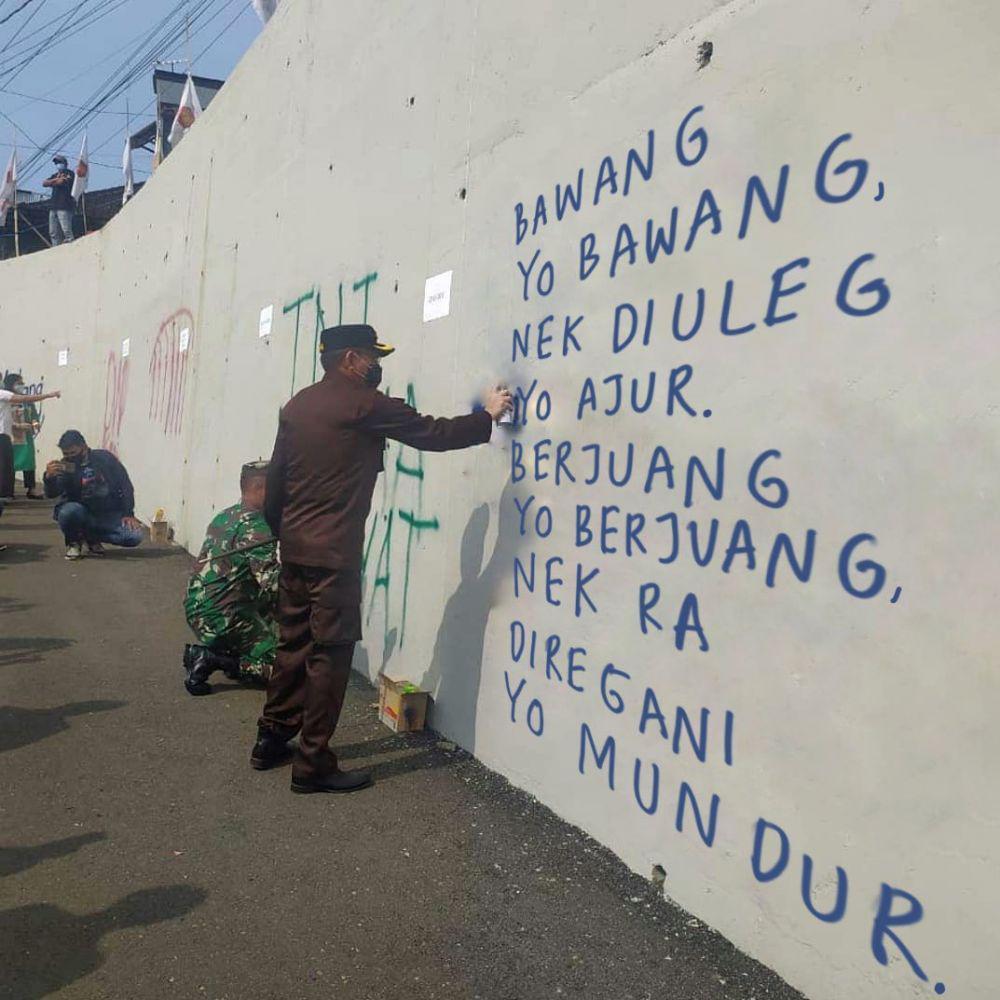 BAWANG
YO BAWANG,
NEK DIULEG
YO AJUR.
BERJUANG
YO BERJUANG,
NEK RA
DIREGANI
YO MUNDUR.
TNI